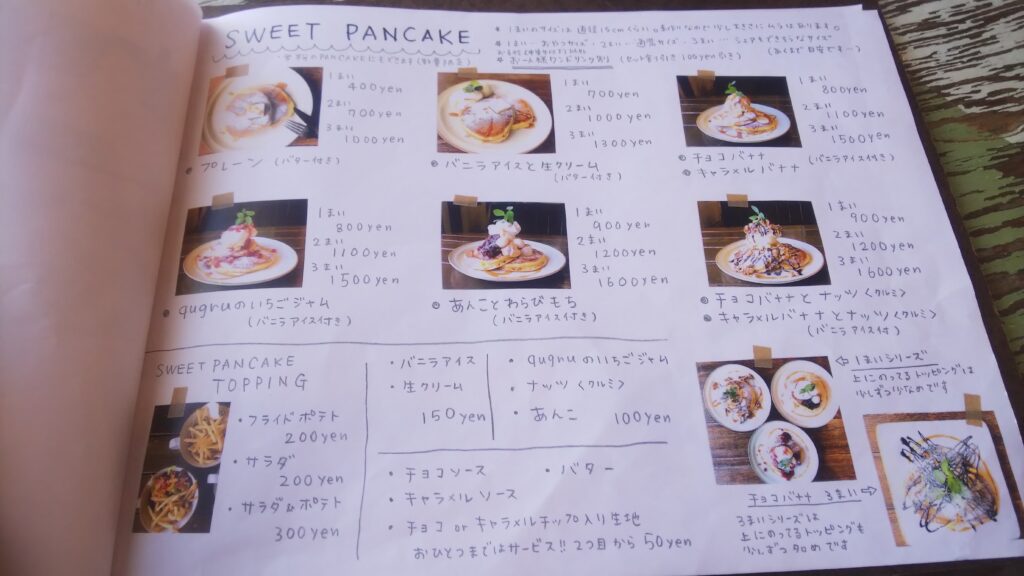 SWEET PANCAKE
* 1まいのサイズは直径15cmくらい。手作りなので少し大きさにムラは有ります。
* 1まい…おやつサイズ・2まい…通常サイズ・3まい…シェアもできそうなサイズ
(あくまで目安です…)
* お一人様ワンドリンク制 (セット割り引き 100yen引き)
1まい
400yen
2まい
700yen
3まい
1000yen
• プレーン (バター付き)
1まい
700yen
2まい
1000yen
3まい
1300yen
• バニラアイスと生クリーム
(バター付き)
1まい
800yen
2まい
1100yen
3まい
1500yen
• チョコバナナ (バニラアイス付き)
• キャラメルバナナ
1まい
800yen
2まい
1100yen
3まい
1500yen
• qugruのいちごジャム
(バニラアイス付き)
1まい
900yen
2まい
1200yen
3まい
1600yen
• あんことわらびもち
(バニラアイス付き)
1まい
900yen
2まい
1200yen
3まい
1600yen
• チョコバナナとナッツ〈クルミ〉
• キャラメルバナナとナッツ〈クルミ〉
(バニラアイス付)
SWEET PANCAKE
TOPPING
・フライドポテト
200yen
・サラダ
200yen
・サラダ&ポテト
300yen
・バニラアイス
・生クリーム
150yen
・qugruのいちごジャム
・ナッツ〈クルミ〉
・あんこ 100yen
・チョコソース ・バター
・キャラメルソース
・チョコ or キャラメルチップ入り生地
おひとつまではサービス!! 2つ目から 50yen
⇐ 1まいシリーズ
上にのってるトッピングは
少しずつ少なめです
チョコバナナ 3まい ⇒
3まいシリーズは
上にのってるトッピングも
少しずつ多めです